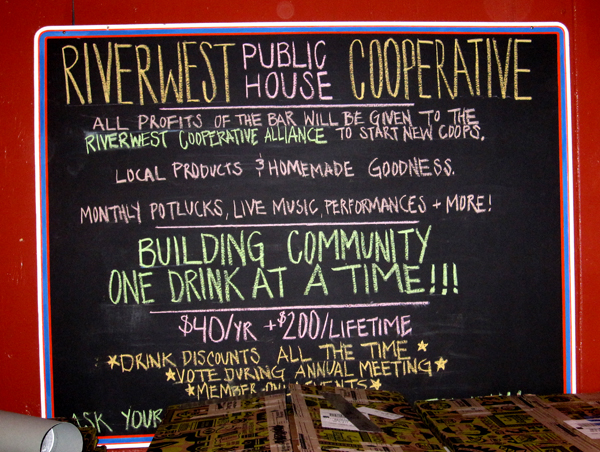 RIVERWEST PUBLIC HOUSE COOPERATIVE
ALL PROFITS OF THE BAR WILL BE GIVEN TO THE
RIVERWEST COOPERATIVE ALLIANCE TO START NEW COOPS.
LOCAL PRODUCTS & HOMEMADE GOODNESS.
MONTHLY POTLUCKS, LIVE MUSIC, PERFORMANCES + MORE!
BUILDING COMMUNITY
ONE DRINK AT A TIME!!!
$40/YR + $200/LIFETIME
★DRINK DISCOUNTS ALL THE TIME★
★VOTE DURING ANNUAL MEETING★
★MEMBER-ONLY EVENTS★
ASK YOUR